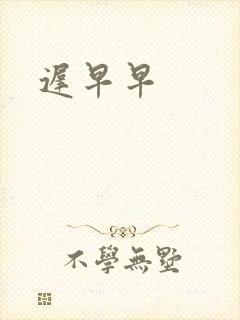 遲早早
不學無墅